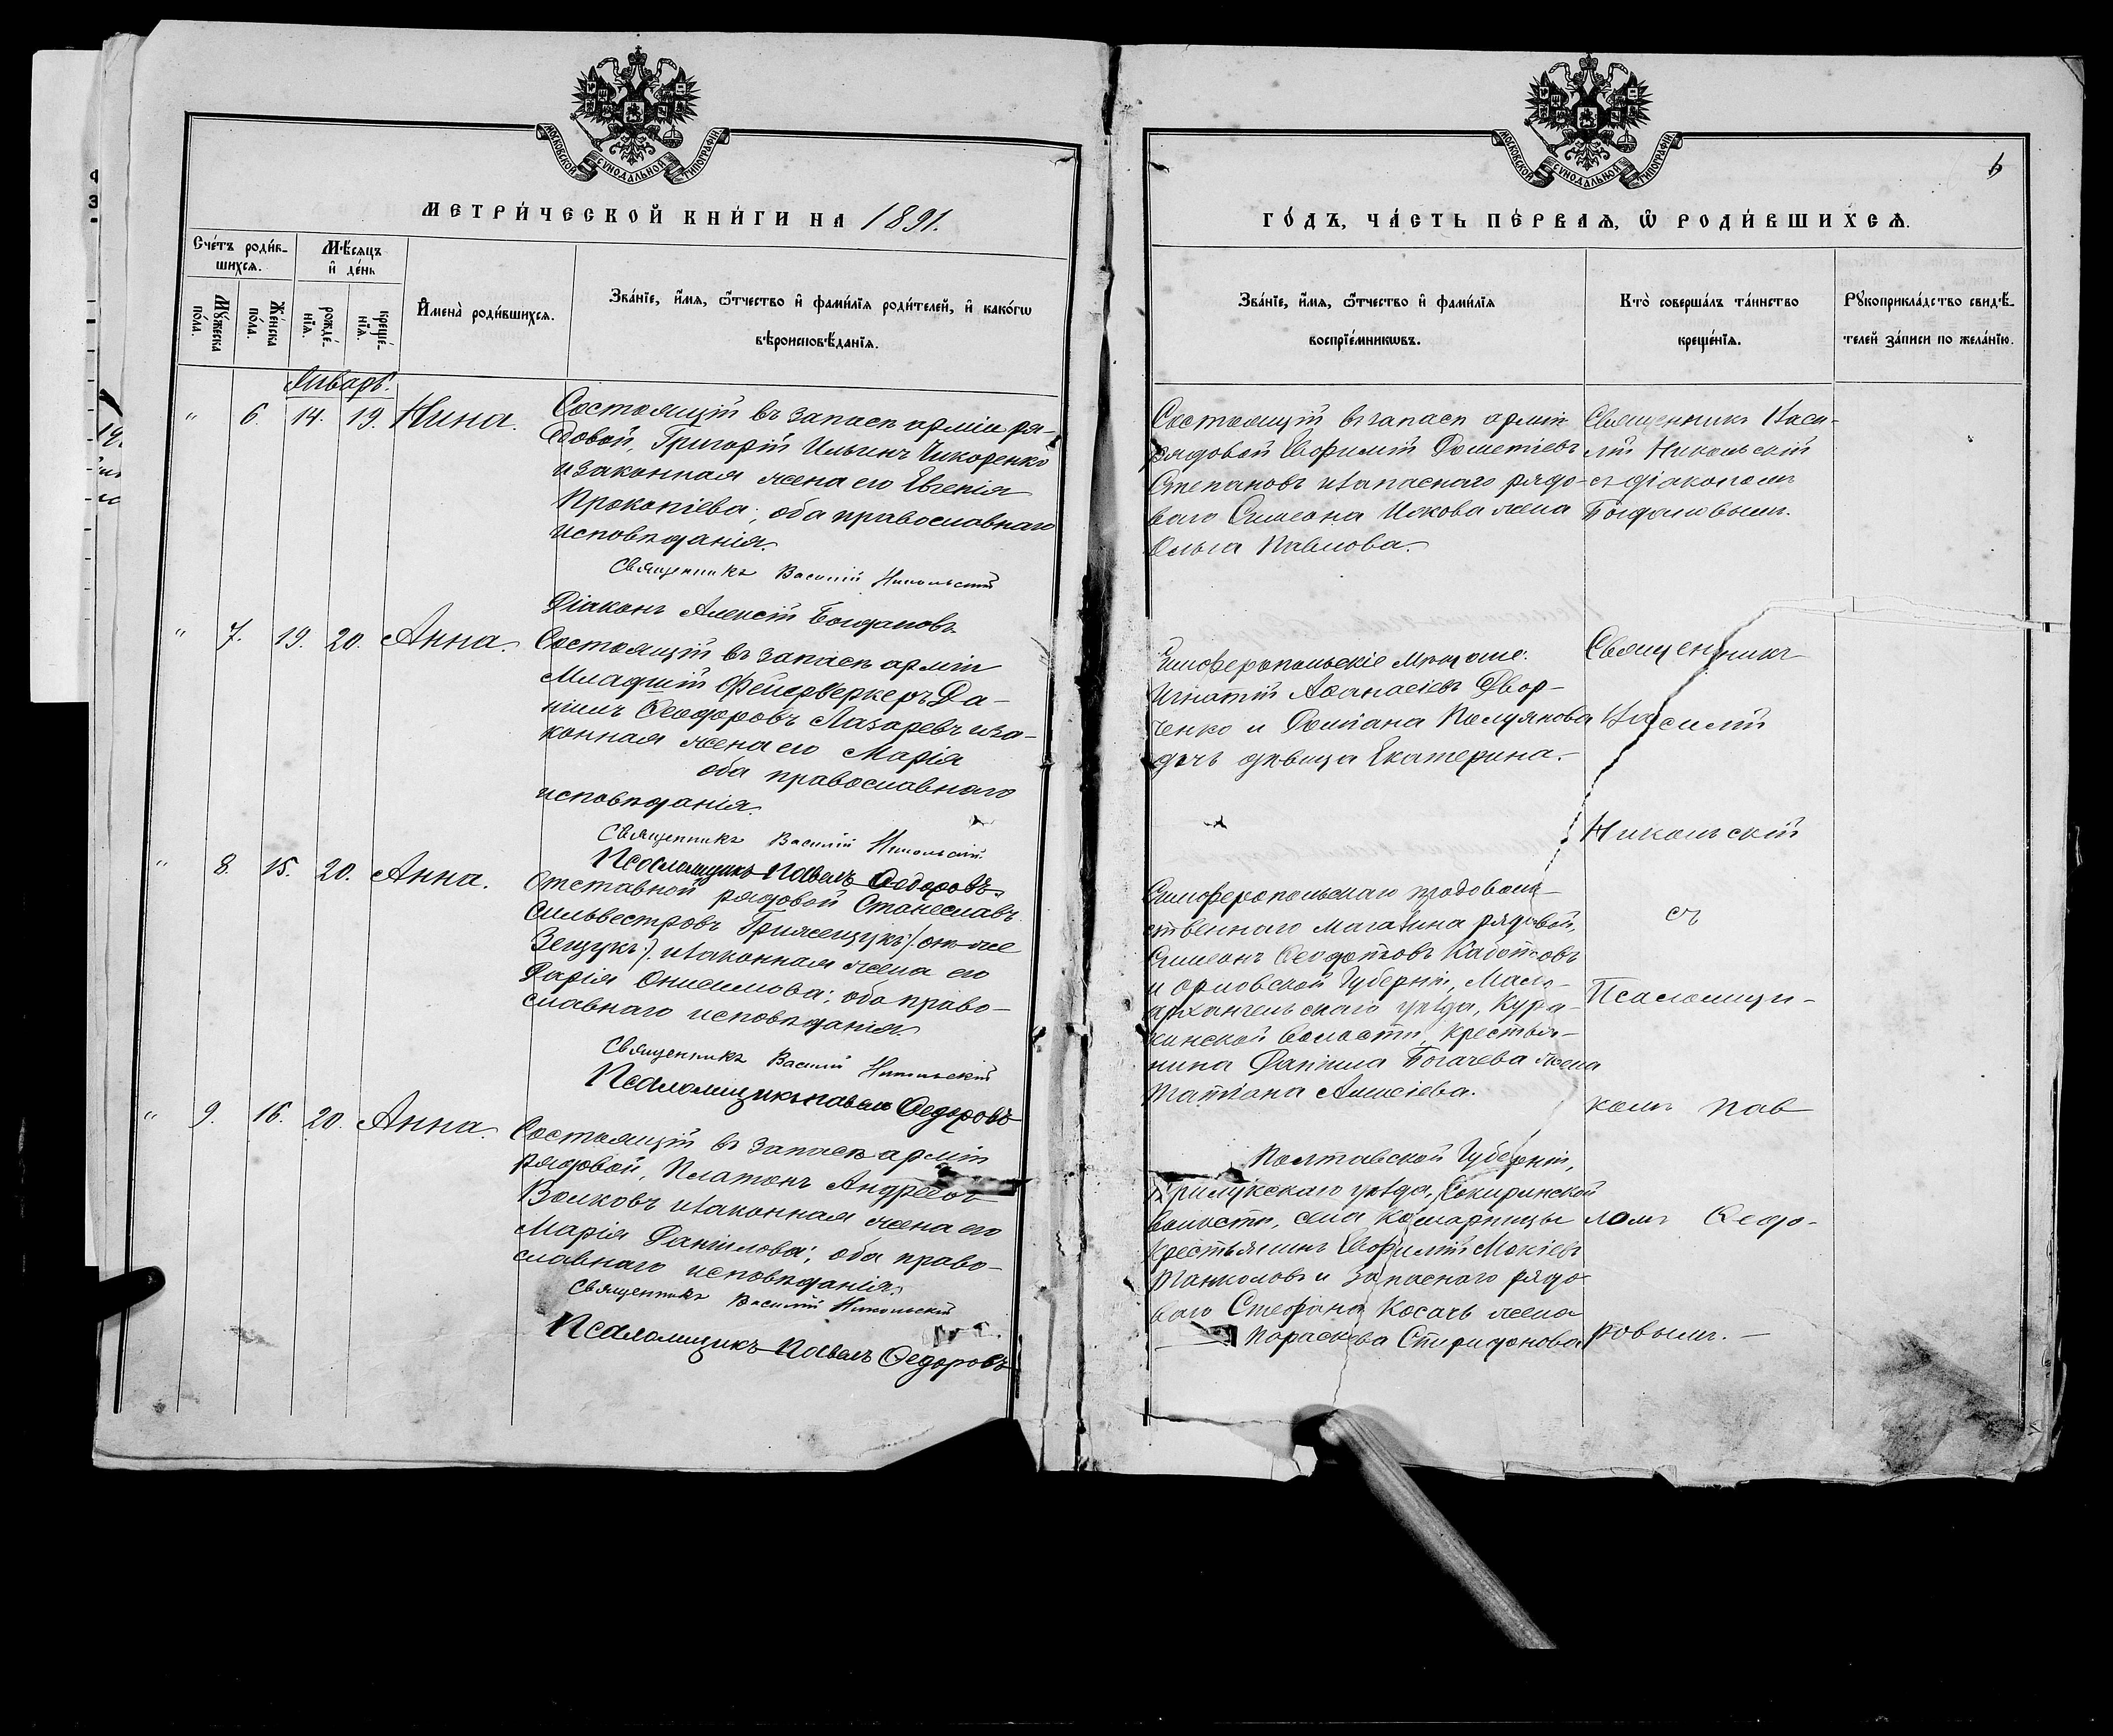 МОСКОВСКОЙ СѴНОДАЛЬНОЙ ТИПОГРАФІИ
МЕТРИ́ЧЕСКОЙ КНИ́ГИ НА 1891.
Сче́тъ роди́в-
шихсѧ.
Мѣ́сѧцъ
и҆ де́нь
Мꙋ́жеска
по́ла.
Же́нска
по́ла.
рожде́-
нїѧ.
креще́-
нїѧ.
И҆мена̀ роди́вшихсѧ.
Зва́нїе, и҆́мѧ, ѻ҆́тчество и҆ фами́лїѧ роди́телей, и҆ како́гѡ
вѣроисповѣ́данїѧ.
Январь.
" 6. 14. 19. Нина.
Состоящій въ запасѣ арміи ря-
довой, Григорій Ильинъ Чикоренко
и законная жена его Евгенія
Прокопіева; оба православнаго
исповѣданія.
Священникъ Василій Никольскій
Діаконъ Алексій Богдановъ.
" 7. 19. 20. Анна.
Состоящій въ запасѣ арміи
Младшій Фейерверкеръ Да-
ніилъ Ѳеодоровъ Лазаревъ и за-
конная жена его Марія
оба православнаго
исповѣданія.
Священникъ Василій Никольскій
Псаломщикъ Павелъ Ѳедоровъ.
" 8. 15. 20. Анна.
Отставной рядовой Станеславъ
Сильвестровъ Гримсещукъ /: онъ же
Зещукъ:/ и законная жена его
Дарія Онисимова; оба право-
славнаго исповѣданія.
Священникъ Василій Никольскій
Псаломщикъ Павелъ Ѳедоровъ
" 9. 16. 20. Анна.
Состоящій въ запасѣ арміи
рядовой, Платонъ Андреевъ
Волковъ и законная жена его
Марія Даніилова; оба право-
славнаго исповѣданія.
Священникъ Василій Никольскій
Псаломщикъ Павелъ Ѳедоровъ
МОСКОВСКОЙ СѴНОДАЛЬНОЙ ТИПОГРАФІИ
ГО́ДЪ, ЧА́СТЬ ПЕ́РВАѦ, Ѡ҆ РОДИ́ВШИХСѦ.
Зва́нїе, и҆́мѧ, ѻ҆́тчество и҆ фами́лїѧ
воспрїе́мникѡвъ.
Кто̀ соверша́лъ та́инство
креще́нїѧ.
Рꙋкоприкла́дство свидѣ́-
телей за́писи по жела́нїю.
Состоящій въ запасѣ арміи
рядовой Евфимій Дометіевъ
Степановъ и запаснаго рядо-
ваго Симеона Искова жена
Ольга Павлова.
Священникъ Васи-
лій Никольскій
съ діакономъ
Богдановымъ.
Симферопольскіе Мѣщане:
Игнатій Аѳанасіевъ Двор-
ченко и Даміана Полуянова
дочь дѣвица Екатерина.
Симферопольскаго продоволь-
ственнаго магазина рядовой,
Симеонъ Ѳеодотовъ
и Орловской Губерніи, Мало-
архангельскаго уѣзда, Кура-
кинской волости, крестья-
нина Даніила Богачева жена
Татіана Алексіева.
Полтавской Губерніи,
Прилукскаго уѣзда, Сокиринской
волости, села
крестьянинъ Евфимій Мокіевъ
и запаснаго рядо-
ваго Стефана Косачъ жена
Параскева Спиридонова
Священникъ
Василій
Никольскій
съ
Псаломщи-
комъ Пав
ломъ Ѳедо-
ровымъ.